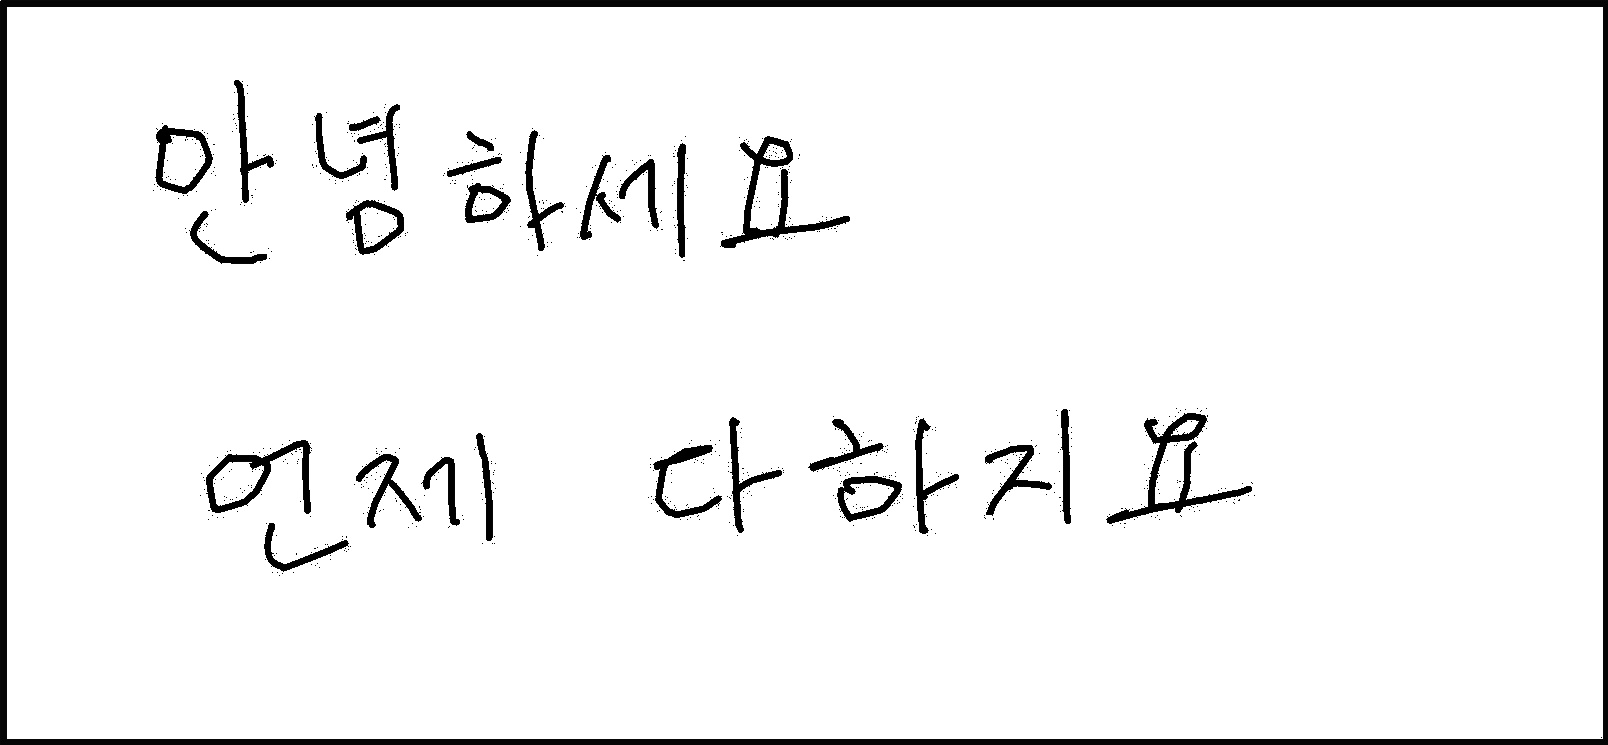 안녕하세요
언제 다하지요